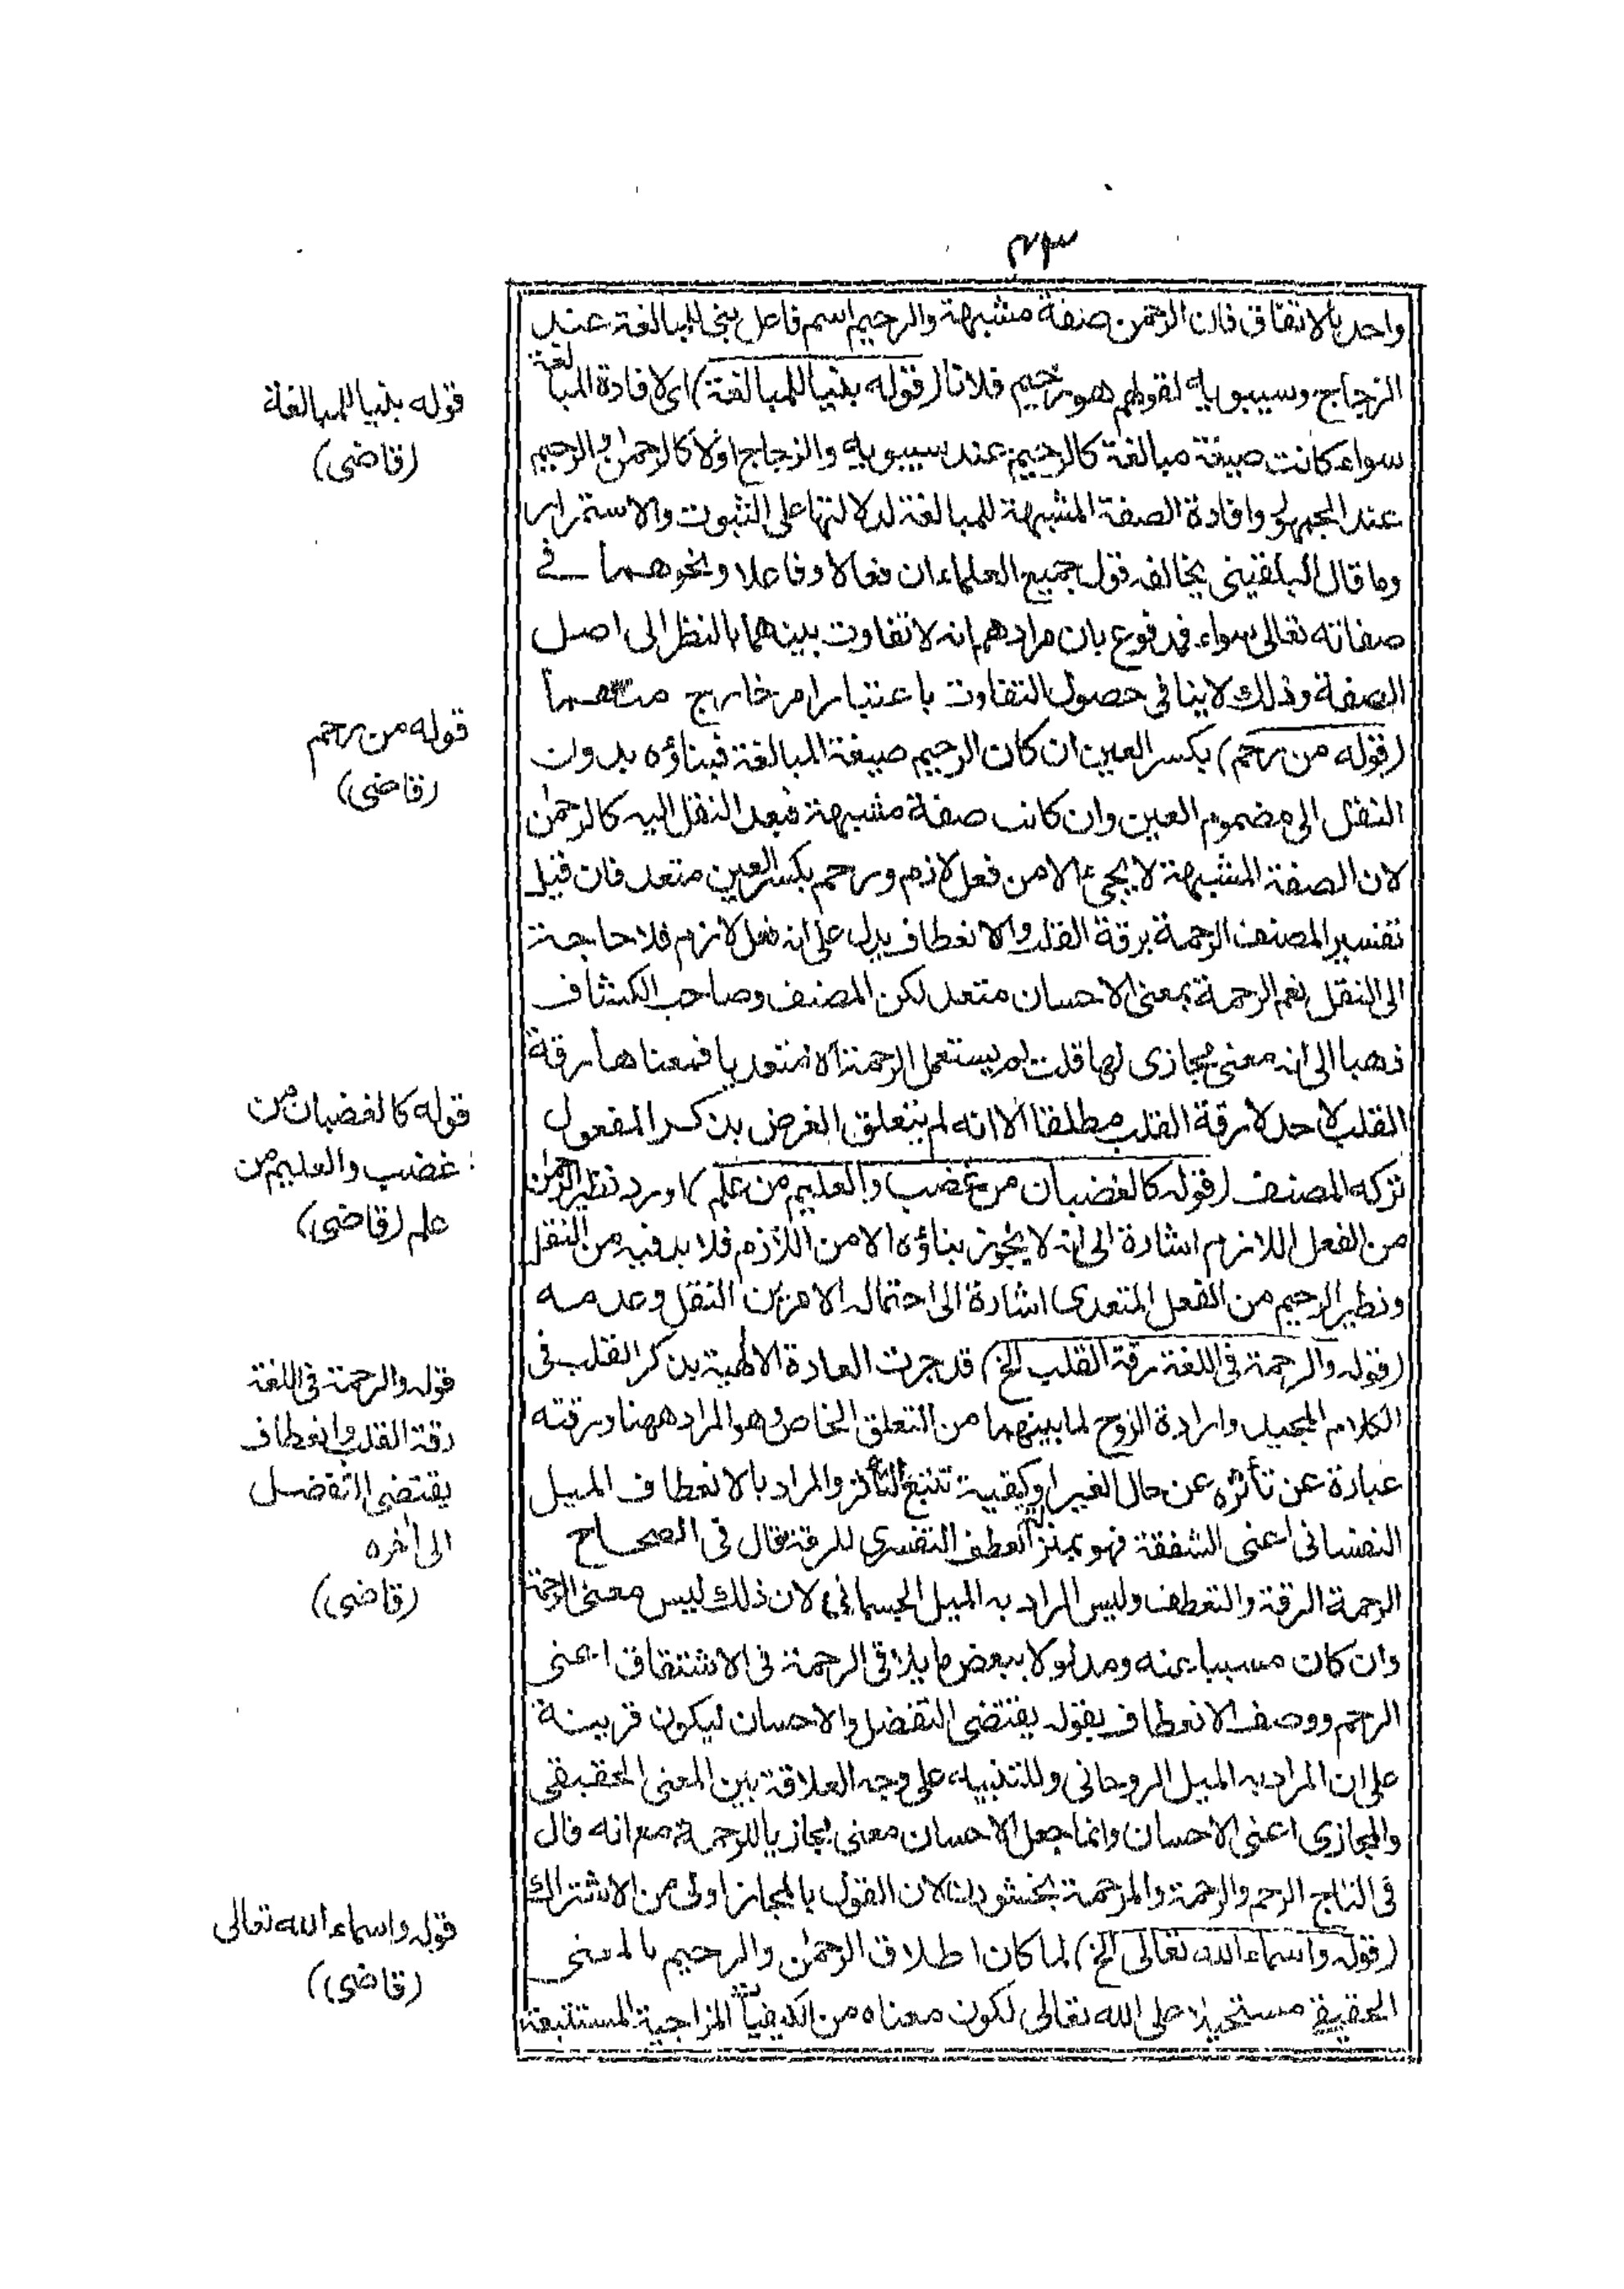 ٤٣
واحد بالاتفاق فان الرحمن صفة مشبهة والرحيم اسم فاعل بنى للمبالغة عند
الزجاج وسيبويه لقولهم هو رحيم فلانا (قوله بنيا للمبالغة) اى لافادة المبالغة
سواء كانت صيغة مبالغة كالرحيم عند سيبويه والزجاج اولا كالرحمن والرحيم
عند الجمهور وافادة الصفة المشبهة للمبالغة لدلالتها على الثبوت والاستمرار
وما قال البلقينى يخالفه قول جميع العلماء ان فعالا وفاعلا ونحوهما فى
صفاته تعالى سواء فمدفوع بان مرادهم انه لا تفاوت بينهما بالنظر الى اصل
الصفة وذلك لا ينافى حصول التفاوت باعتبار امر خارج منهما
(قوله من رحم) بكسر العين ان كان الرحيم صيغة المبالغة فبناؤه بدون
النقل الى مضموم العين وان كانت صفة مشبهة فبعد النقل اليه كالرحمن
لان الصفة المشبهة لا يجىء الا من فعل لازم ورحم بكسر العين متعد فان قيل
تفسير المصنف الرحمة برقة القلب والانعطاف يدل على انه فعل لازم فلا حاجة
الى النقل نعم الرحمة بمعنى الاحسان متعد لكن المصنف وصاحب الكشاف
ذهبا الى انه معنى مجازى لها قلت لم يستعمل الرحمة الا متعديا فمعناها رقة
القلب لاحد لا رقة القلب مطلقا الا انه لم يتعلق الغرض بذكر المفعول
تركه المصنف (قوله كالغضبان من غضب والعليم من علم) اورد نظير الرحمن
من الفعل اللازم اشارة الى انه لا يجوز بناؤه الا من اللازم فلا بد فيه من النقل
ونظير الرحيم من الفعل المتعدى اشارة الى احتماله الامرين النقل وعدمه
(قوله والرحمة فى اللغة رقة القلب الخ) قد جرت العادة الالهية بذكر القلب فى
الكلام المجيد وارادة الروح لما بينهما من التعلق الخاص وهو المراد ههنا ورقته
عبارة عن تأثره عن حال الغير او كيفية تتبع التأثر والمراد بالانعطاف الميل
النفسانى اعنى الشفقة فهو بمنزلة العطف التفسيرى للرقة قال فى الصحاح
الرحمة الرقة والتعطف وليس المراد به الميل الجسمانى لان ذلك ليس معنى الرحمة
وان كان مسببا عنه ومدلولا ببعض ما يلاقى الرحمة فى الاشتقاق اعنى
الرحم ووصف الانعطاف بقوله يقتضى التفضل والاحسان ليكون قرينة
على ان المراد به الميل الروحانى وللتنبيه على وجه العلاقة بين المعنى الحقيقى
والمجازى اعنى الاحسان وانما جعل الاحسان معنى مجازيا للرحمة مع انه قال
فى التاج الرحم والرحمة والمرحمة بخشودن لان القول بالمجاز اولى من الاشتراك
(قوله واسماء الله تعالى الخ) لما كان اطلاق الرحمن والرحيم بالمعنى
الحقيقى مستحيلا على الله تعالى لكون معناه من الكيفيات المزاجية المستتبعة
قوله بنيا للمبالغة
(قاضى)
قوله من رحم
(قاضى)
قوله كالغضبان من
غضب والعليم من
علم (قاضى)
قوله والرحمة فى اللغة
رقة القلب وانعطاف
يقتضى التفضل
الى آخره
(قاضى)
قوله واسماء الله تعالى
(قاضى)